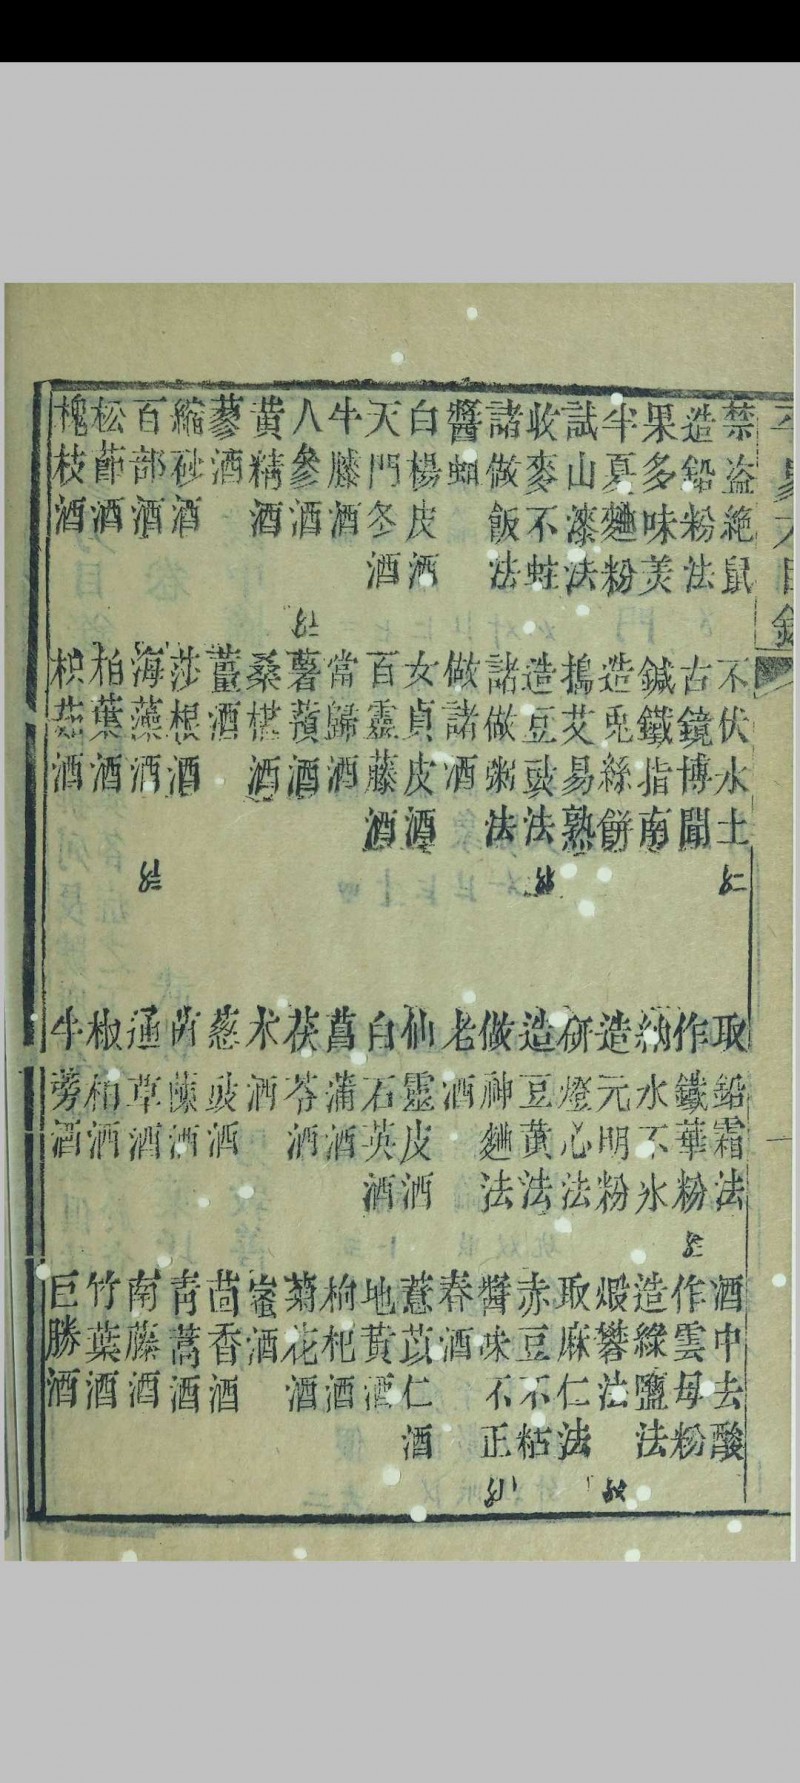 禁盜絕鼠
不伏水土
取鉛霜法
酒中去酸
造鉛粉法
古鏡博聞
作鐵華粉
作雲母粉
果多味美
鍼鐵指南
納水不氷
造綠鹽法
半夏麯粉
造兎絲餅
造元明粉
煅礬法
試山漆法
搗艾易熟
研燈心法
取麻仁法
收麥不蛀
造豆豉法
造豆黃法
赤豆不粘
諸做飯法
諸做粥法
做神麯法
醬味不正
醬蛆
做諸酒
老酒
春酒
白楊皮酒
女貞皮酒
仙靈皮酒
薏苡仁酒
天門冬酒
百靈藤酒
白石英酒
地黃酒
牛膝酒
當歸酒
菖蒲酒
枸杞酒
人參酒
薯蕷酒
茯苓酒
菊花酒
黃精酒
桑椹酒
朮酒
蜜酒
蓼酒
薑酒
蔥豉酒
茴香酒
縮砂酒
莎根酒
茵蔯酒
靑蒿酒
百部酒
海藻酒
通草酒
南藤酒
松節酒
柏葉酒
椒柏酒
竹葉酒
槐枝酒
枳茹酒
牛蒡酒
巨勝酒